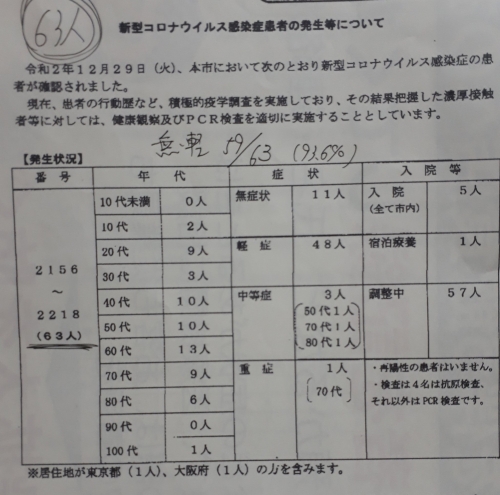 63人
新型コロナウイルス感染症患者の発生等について
令和2年12月29日（火）、本市において次のとおり新型コロナウイルス感染症の患
者が確認されました。
現在、患者の行動歴など、積極的疫学調査を実施しており、その結果把握した濃厚接触
者等に対しては、健康観察及びPCR検査を適切に実施することとしています。
無・軽 59/63 (93.6%)
【発生状況】
番号 年代 症状 入院等
2156
～
2218
(63人)
10代未満 0人
10代 2人
20代 9人
30代 3人
40代 10人
50代 10人
60代 13人
70代 9人
80代 6人
90代 0人
100代 1人
無症状 11人
軽症 48人
中等症 3人
50代1人
70代1人
80代1人
重症 1人
70代
入院 5人
(全て市内)
宿泊療養 1人
調整中 57人
・再陽性の患者はいません。
・検査は4名は抗原検査、
それ以外はPCR検査です。
※居住地が東京都（1人）、大阪府（1人）の方を含みます。